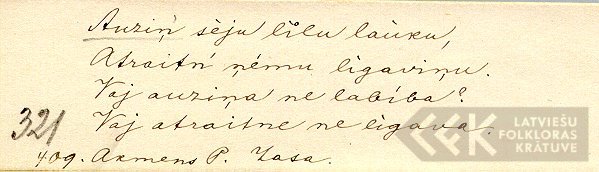 Auziņ sēju lîlu lauku,
Atraitn' ņēmu līgaviņu.
Vaj auziņa ne labība?
Vaj atraitne ne līgava.
321
409. Akmens P. Zasa.
LATVIEŠU
FOLKLORAS
KRĀTUVE